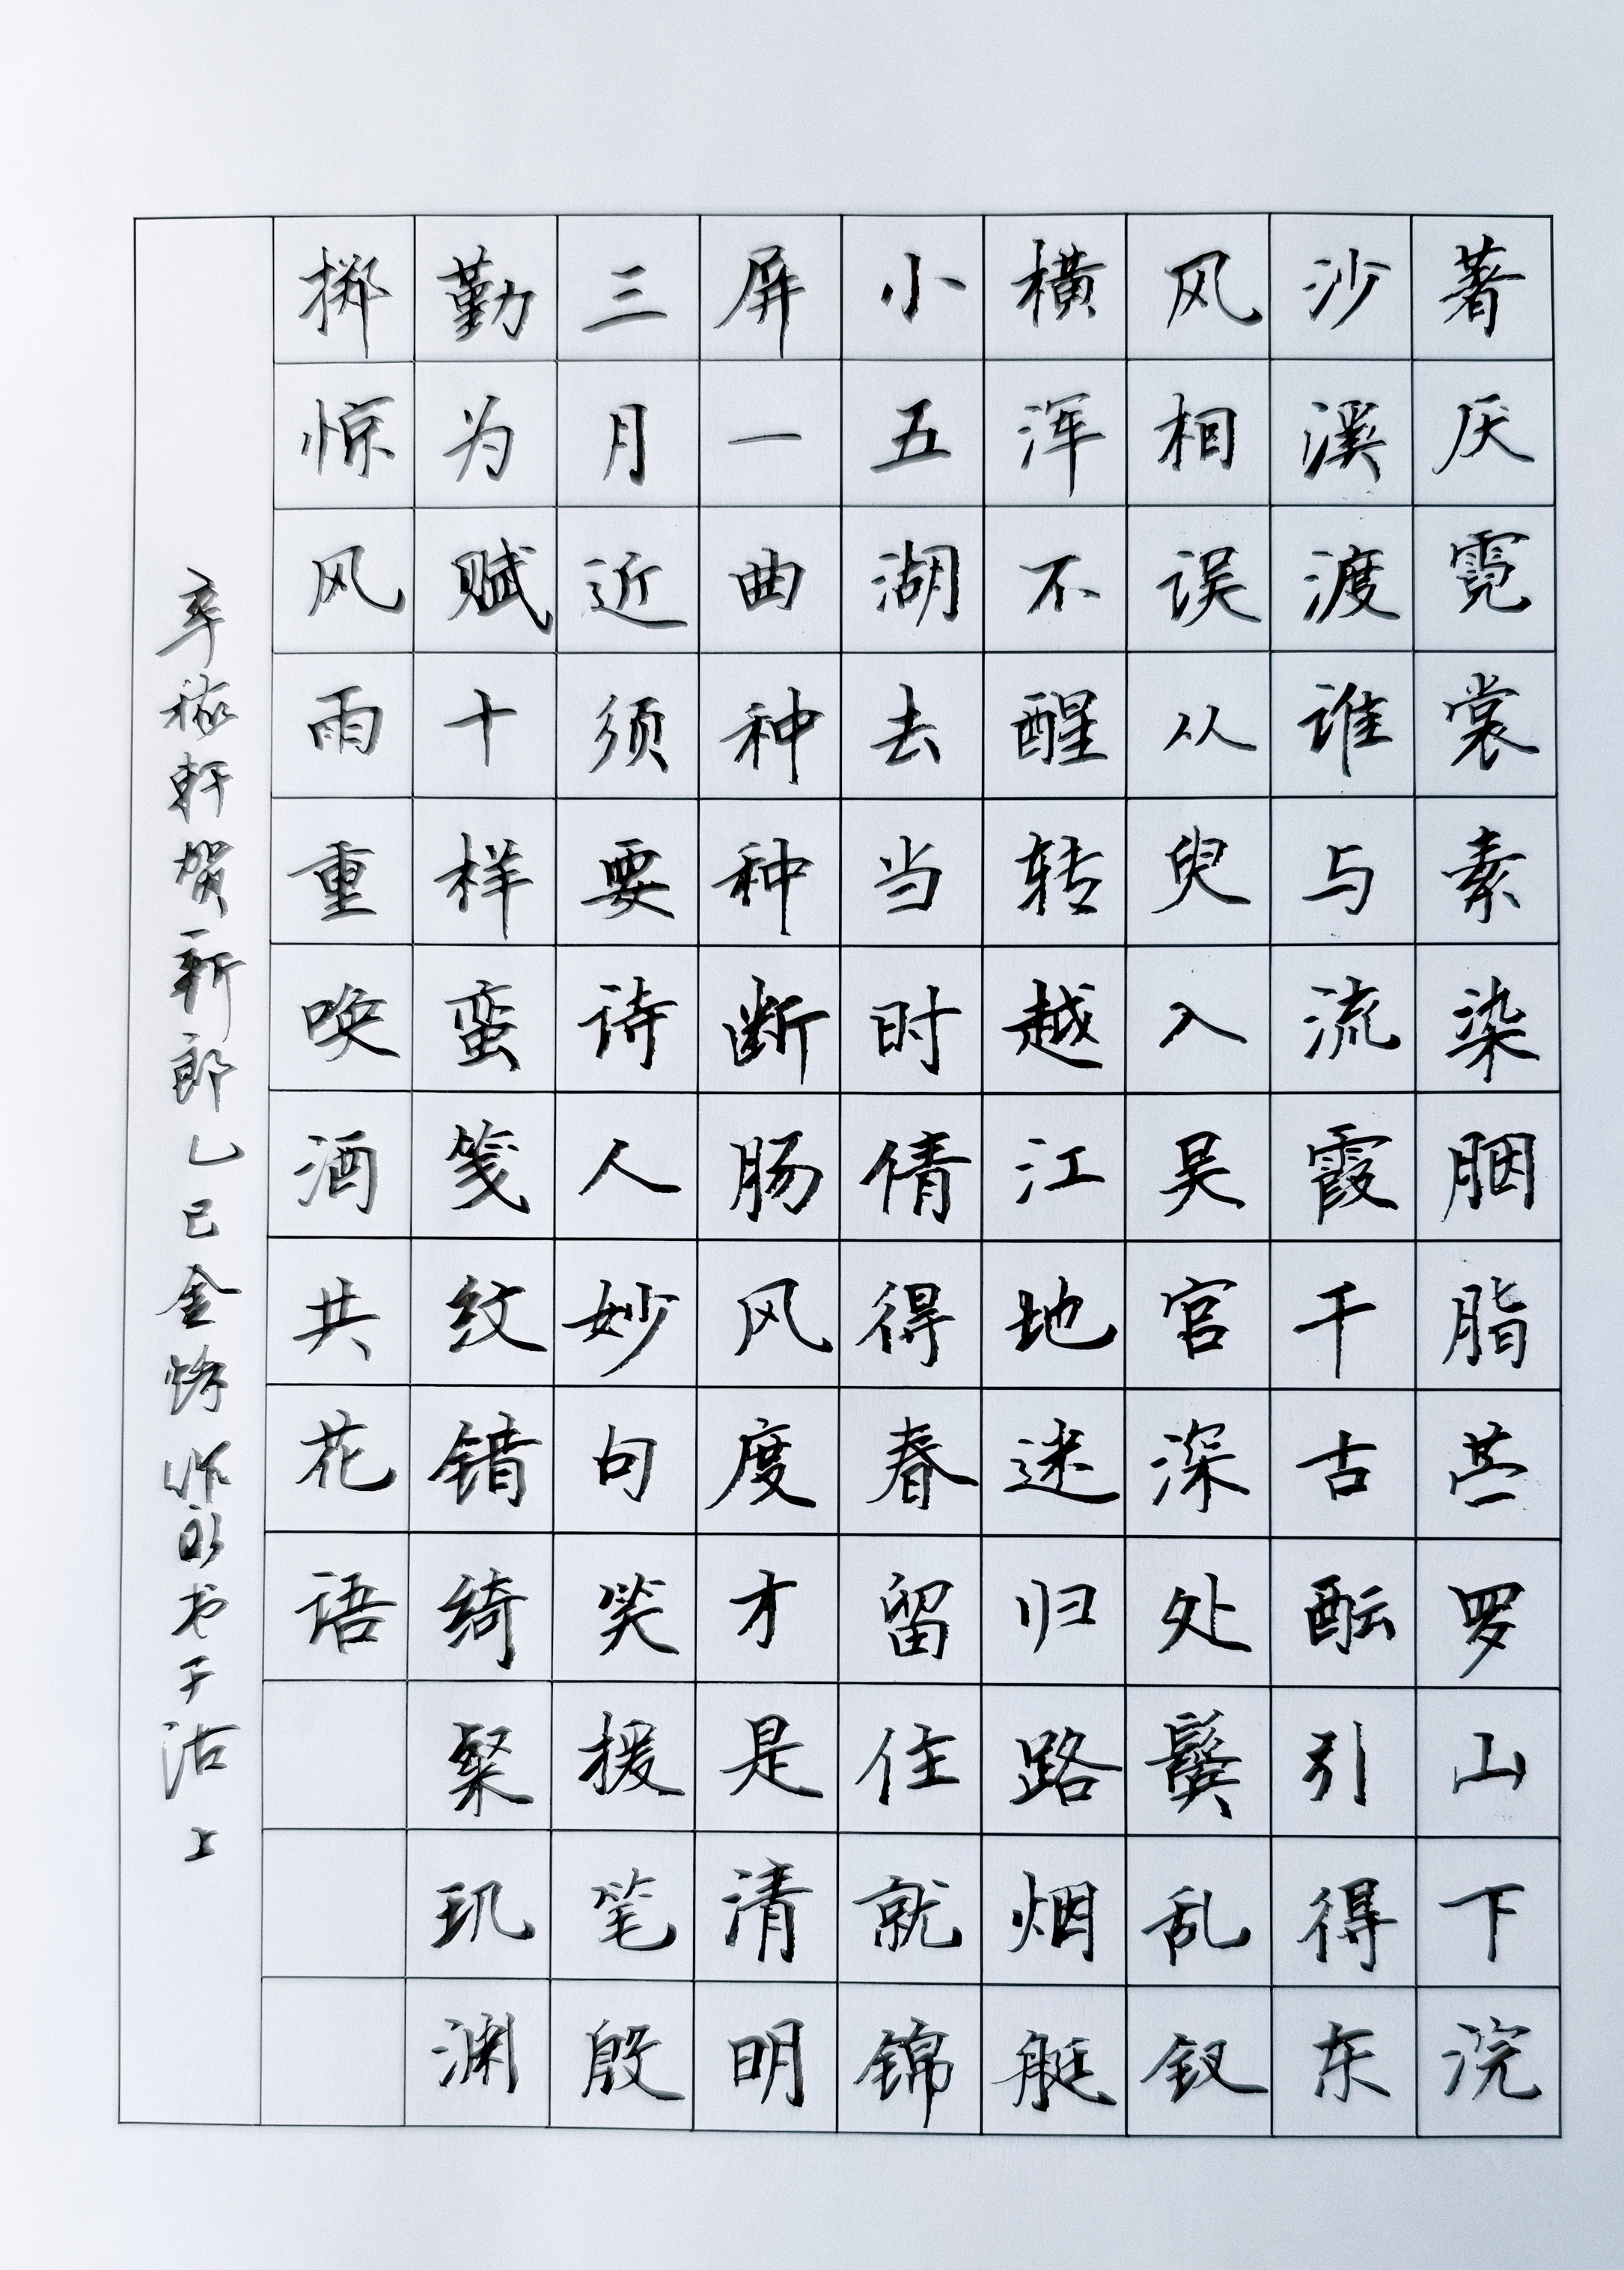 著厌霓裳素染胭脂苎罗山下浣
沙溪渡谁与流霞千古酝引得东
风相误从臾入吴宫深处鬓乱钗
横浑不醒转越江地迷归路烟艇
小五湖去当时倩得春留住就锦
屏一曲种种断肠风度才是清明
三月近须要诗人妙句笑援笔殷
勤为赋十样蛮笺纹错绮粲玑渊
掷惊风雨重唤酒共花语
辛稼轩贺新郎乙巳金书于沽上